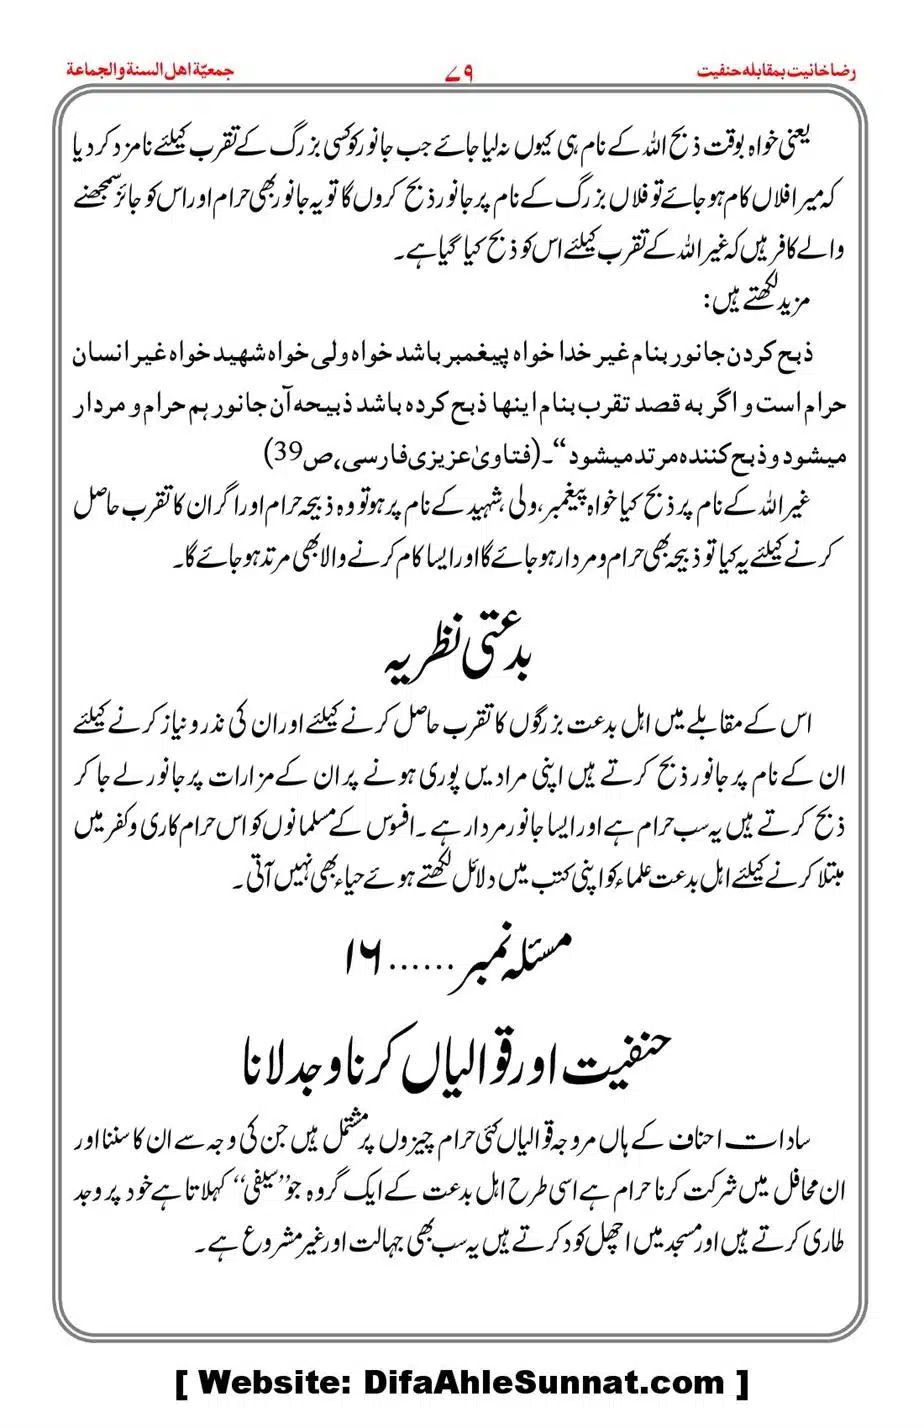 رضاخانیت بمقابلہ حنفیت
۷۹
جمعیّۃ اھل السنۃ والجماعۃ
یعنی خواہ بوقت ذبح اللہ کے نام ہی کیوں نہ لیا جائے جب جانور کو کسی بزرگ کے تقرب کیلئے نامزد کر دیا
کہ میرا فلاں کام ہو جائے تو فلاں بزرگ کے نام پر جانور ذبح کروں گا تو یہ جانور بھی حرام اور اس کو جائز سمجھنے
والے کافر ہیں کہ غیر اللہ کے تقرب کیلئے اس کو ذبح کیا گیا ہے۔
مزید لکھتے ہیں:
ذبح کردن جانور بنام غیر خدا خواہ پیغمبر باشد خواہ ولی خواہ شھید خواہ غیر انسان
حرام است و اگر بہ قصد تقرب بنام اینھا ذبح کردہ باشد ذبیحہ آن جانور ہم حرام و مردار
میشود و ذبح کنندہ مرتد میشود“۔(فتاویٰ عزیزی فارسی، ص39)
غیر اللہ کے نام پر ذبح کیا خواہ پیغمبر، ولی، شہید کے نام پر ہو تو وہ ذبیحہ حرام اور اگر ان کا تقرب حاصل
کرنے کیلئے یہ کیا تو ذبیحہ بھی حرام و مردار ہو جائے گا اور ایسا کام کرنے والا بھی مرتد ہو جائے گا۔
بدعتی نظریہ
اس کے مقابلے میں اہل بدعت بزرگوں کا تقرب حاصل کرنے کیلئے اور ان کی نذر و نیاز کرنے کیلئے
ان کے نام پر جانور ذبح کرتے ہیں اپنی مرادیں پوری ہونے پر ان کے مزارات پر جانور لے جا کر
ذبح کرتے ہیں یہ سب حرام ہے اور ایسا جانور مردار ہے۔ افسوس کے مسلمانوں کو اس حرام کاری و کفر میں
مبتلا کرنے کیلئے اہل بدعت علماء کو اپنی کتب میں دلائل لکھتے ہوئے حیاء بھی نہیں آتی۔
مسئلہ نمبر......۱۶
حنفیت اور قوالیاں کرنا وجد لانا
سادات احناف کے ہاں مروجہ قوالیاں کئی حرام چیزوں پر مشتمل ہیں جن کی وجہ سے ان کا سننا اور
ان محافل میں شرکت کرنا حرام ہے اسی طرح اہل بدعت کے ایک گروہ جو ”سیفی“ کہلاتا ہے خود پر وجد
طاری کرتے ہیں اور مسجد میں اچھل کود کرتے ہیں یہ سب بھی جہالت اور غیر مشروع ہے۔
[ Website: DifaAhleSunnat.com ]